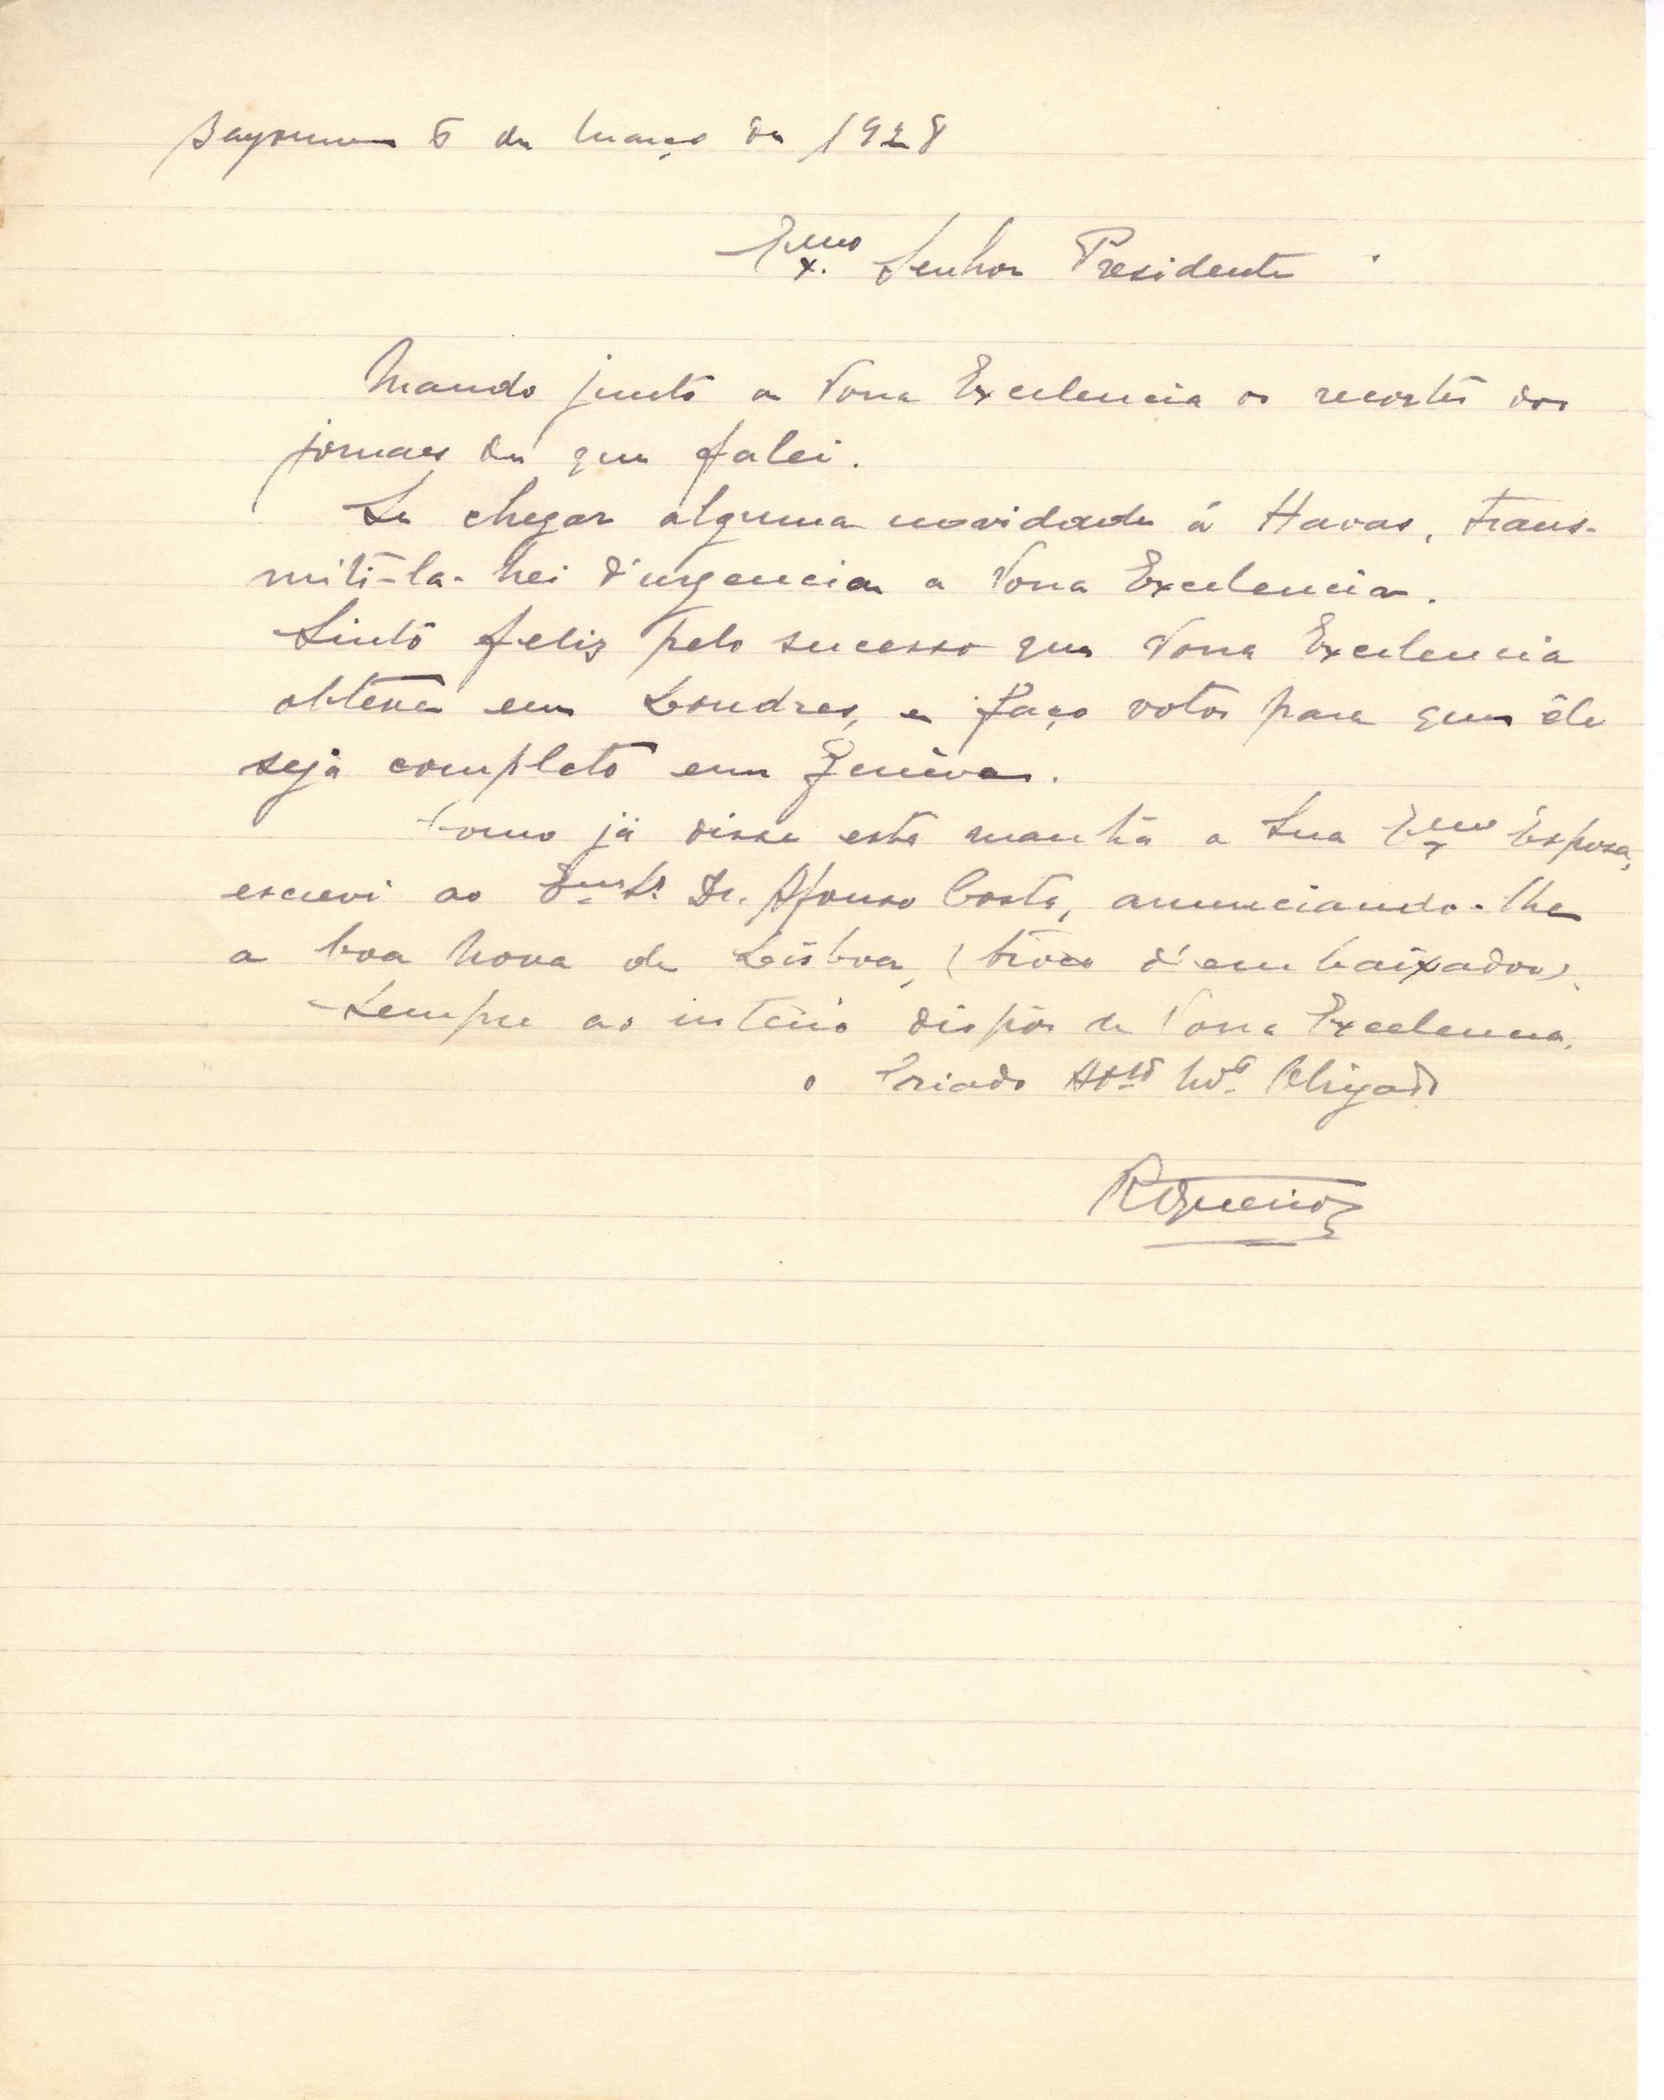 Bayonne 5 de Março de 1928
Exmo Senhor Presidente
Mando junto a Vossa Excelencia os recortes dos
jornaes de que falei.
Se chegar alguma novidade á Havas, trans-
miti-la-hei d'urgencia a Vossa Excelencia.
Sinto feliz pelo sucesso que Vossa Excelencia
obteve em Londres, e faço votos para que êle
seja completo em Genève.
Como já disse esta manhã a Sua Exma Esposa,
escrevi ao Exmo Sr. Dr. Afonso Costa, anunciando-lhe
a boa nova de Lisboa, (troca d'embaixador).
Sempre ao inteiro dispôr de Vossa Excelencia.
o Criado Atto Mto Obrigado